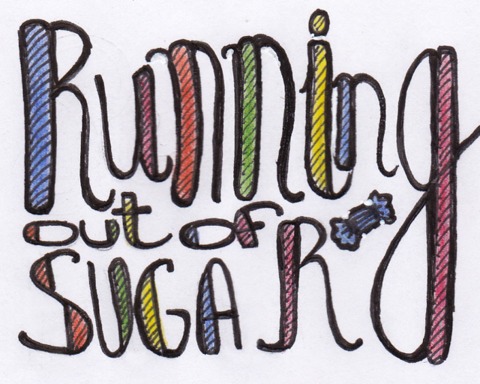 Running
out of
SUGAR